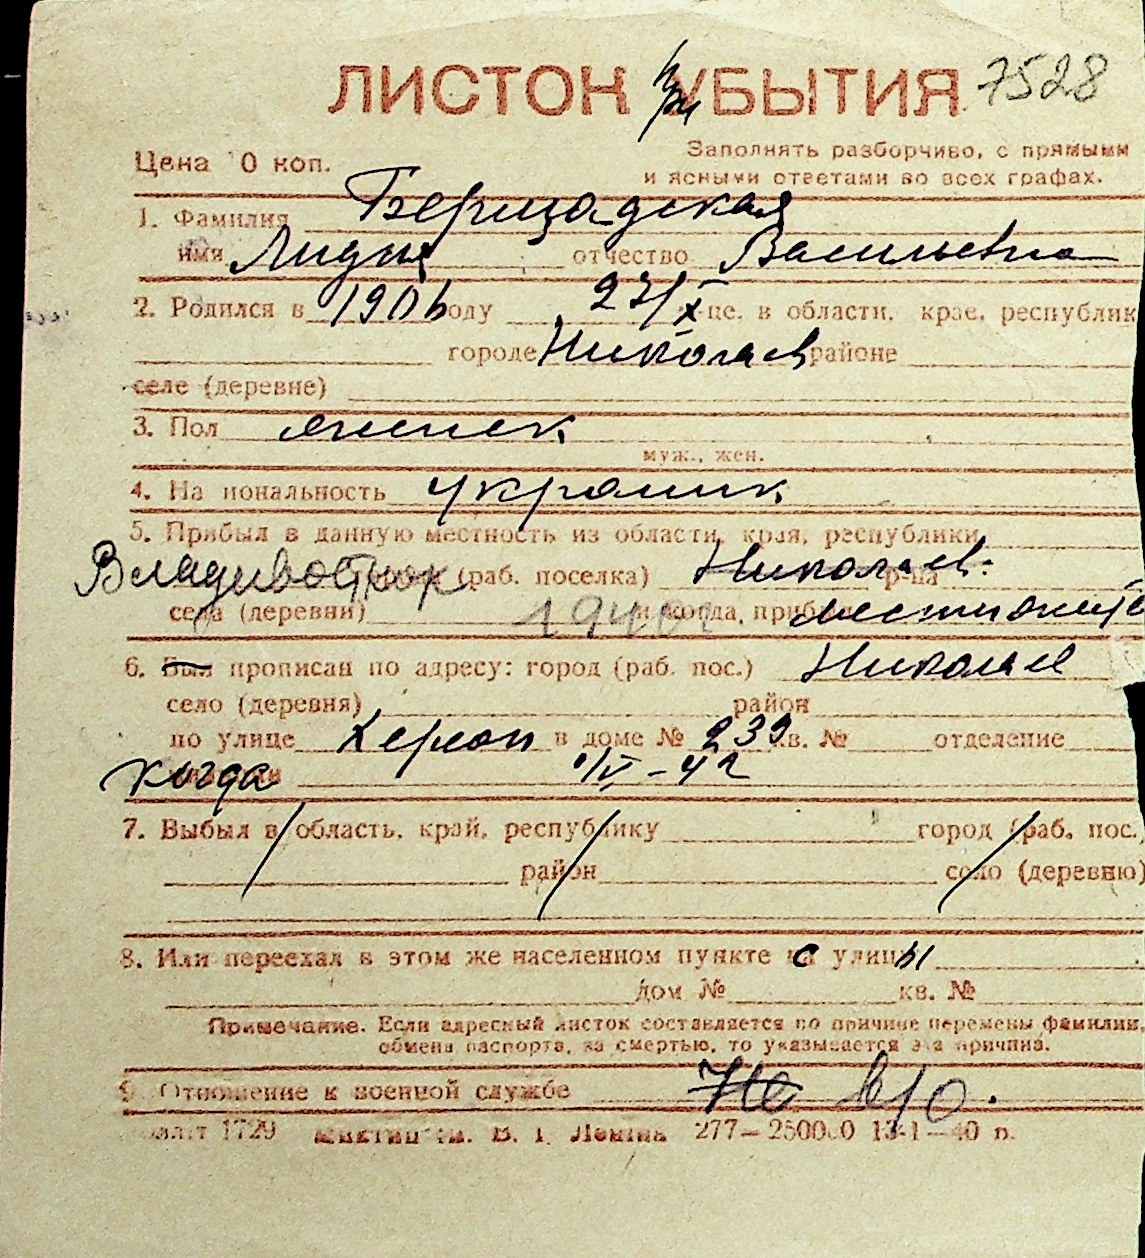 ЛИСТОК при УБЫТИЯ 7528
Цена 10 коп. Заполнять разборчиво, с прямыми
и ясными ответами во всех графах.
1. Фамилия Берщадская
имя Лидия отчество Васильевна
2. Родился в 1906 году 27/X це. в области, крае, республик
городе Николаев районе
селе (деревне)
3. Пол женск
муж., жен.
4. На иональность украинк
5. Прибыл в данную местность из области, края, республики
Владивосток города (раб. поселка) Николаев. р-на
села (деревни) 1940г и когда, прибыл местножите
6. Был прописан по адресу: город (раб. пос.) Николаев
село (деревня) район
по улице Херсон в доме № 239 кв. № отделение
когда 1/V-42
7. Выбыл в область, край, республику город (раб. пос.)
район село (деревню)
8. Или переехал в этом же населенном пункте с улицы
дом № кв. №
Примечание. Если адресный листок составляется по причине перемены фамилии,
обмена паспорта, за смертью, то указывается эта причина.
9. Отношение к военной службе Не в/о.
1729 им. В. И. Ленина 277—250000 13-1—40 г.